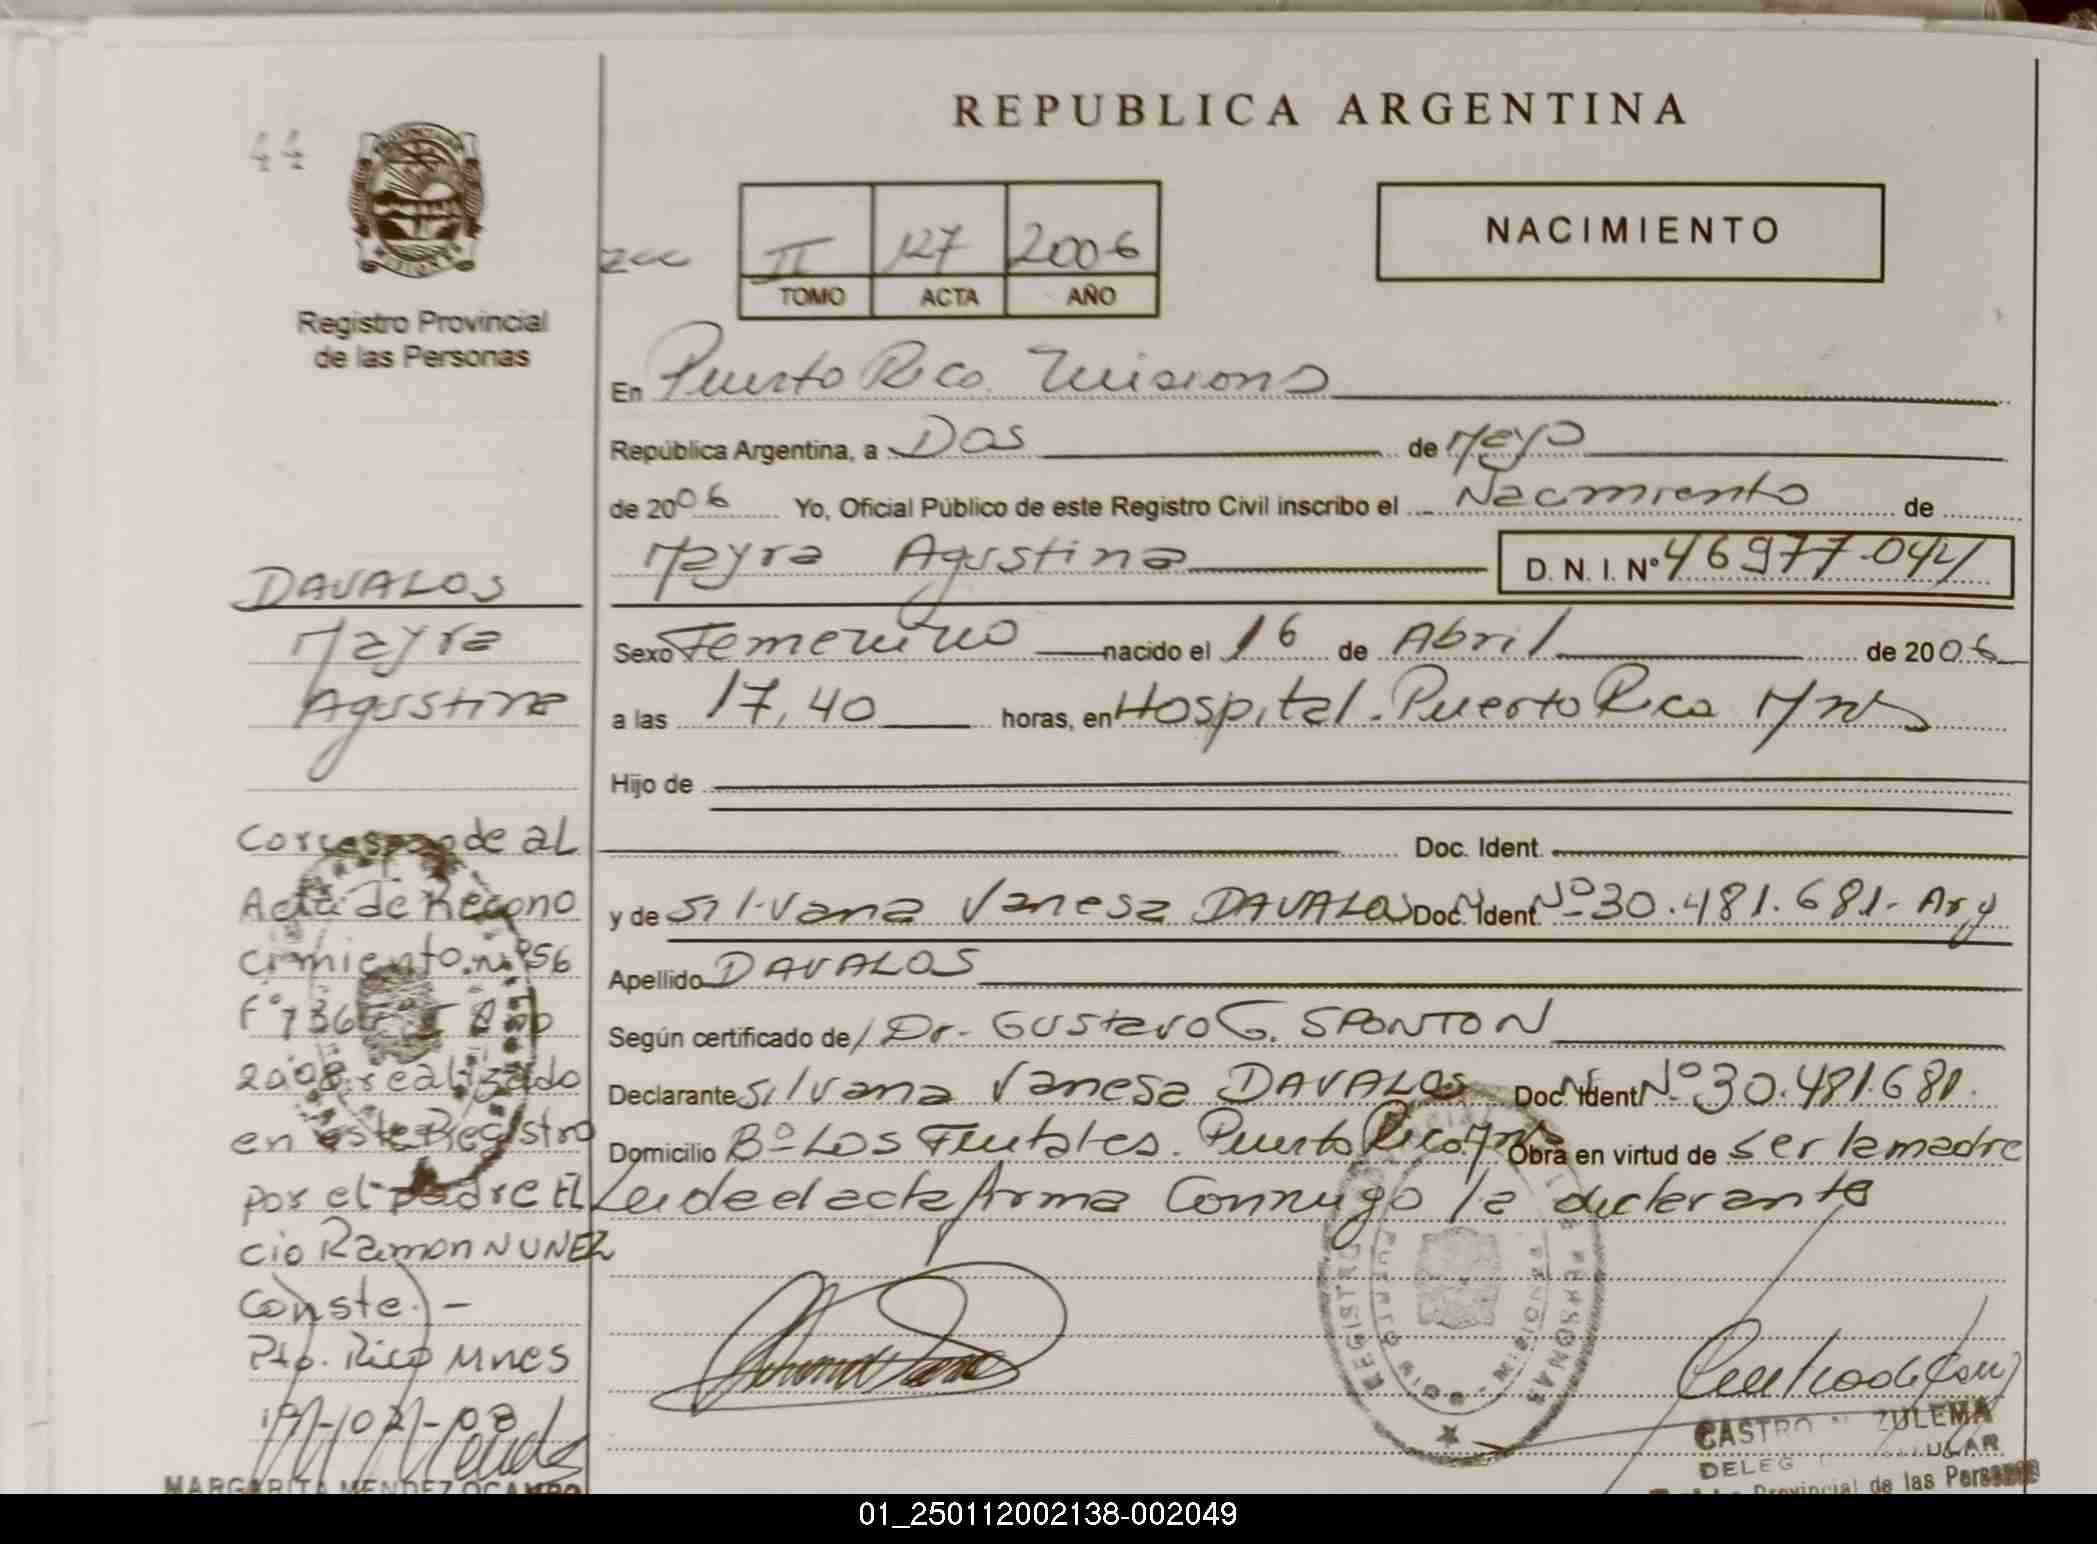 REPUBLICA ARGENTINA
44
NACIMIENTO
II 127 2006
TOMO ACTA AÑO
Registro Provincial
de las Personas
En Puerto Rico Misiones
República Argentina, a Dos de Mayo
de 2006 Yo, Oficial Público de este Registro Civil inscribo el Nacimiento de
Mayra Agustina D. N. I. Nº 46977.044
Sexo Femenino nacido el 16 de Abril de 2006
a las 17,40 horas, en Hospital. Puerto Rico Mnes
Hijo de
Doc. Ident.
y de Silvana Vanesa DAVALOS Doc. Ident. Nº 30.481.681.- Arg
Apellido DAVALOS
Según certificado de Dr. Gustavo G. SPONTON
Declarante Silvana Vanesa DAVALOS Doc. Ident. Nº 30.481.681.
Domicilio Bº Los Frutales. Puerto Rico. Mnes Obra en virtud de ser la madre
Leida el acta firma Conmigo la declarante
DAVALOS
Mayra
Agustina
Corresponde al
Acta de Recono
cimiento. nº 56
Fº 136 Año
2008 realizado
en este Registro
por el padre El
cio Ramon NUNEZ
Conste.) -
Pto. Rico Mnes
MARGARITA MENDEZ OCAMPO
REGISTRO PERSONAS
PUERTO RICO - MISIONES
CASTRO ZULEMA
DELEG
Provincial de las Personas
01_250112002138-002049